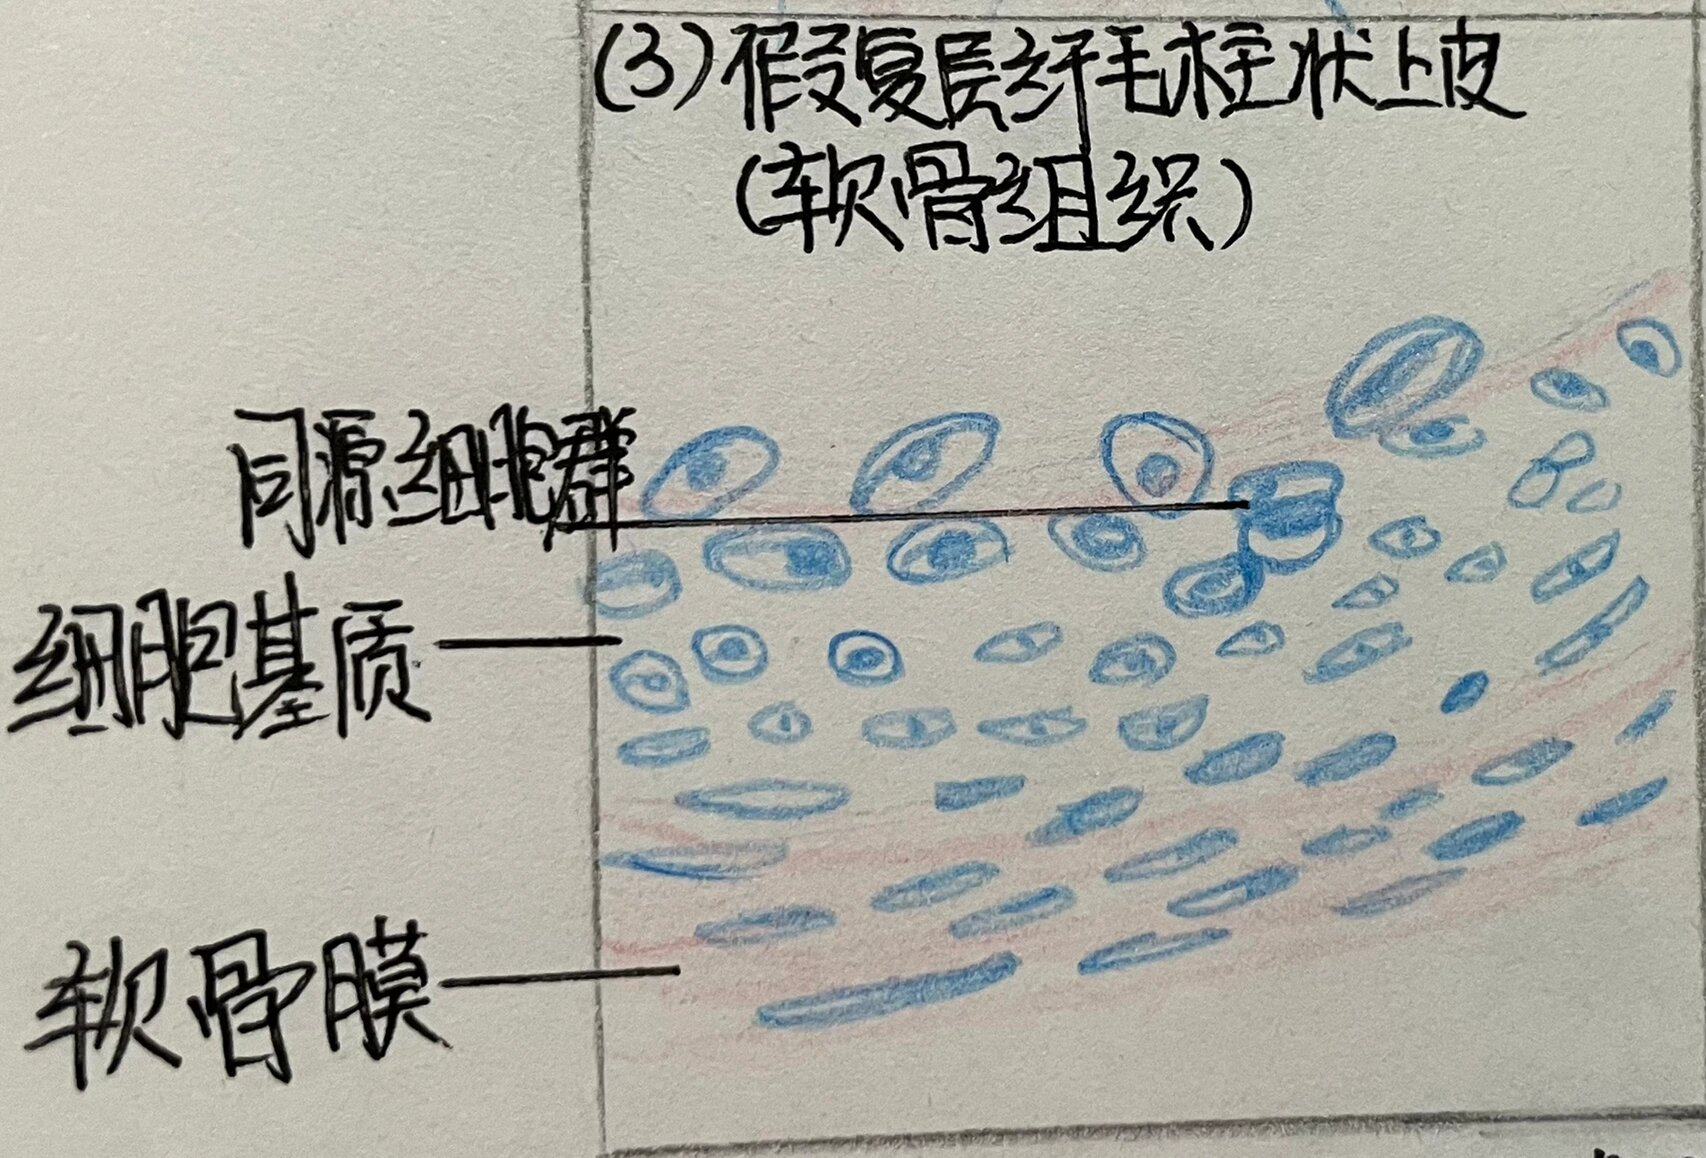 (3)假复层纤毛柱状上皮
(软骨组织)
同源细胞群
细胞基质
软骨膜